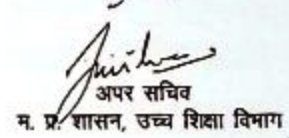 अपर सचिव
म. प्र. शासन, उच्च शिक्षा विभाग